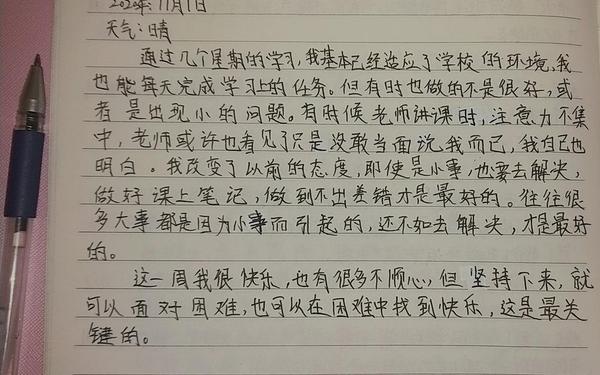 2020年11月1日
天气:晴
通过几个星期的学习,我基本已经适应了学校的环境,我
也能每天完成学习上的任务。但有时也做的不是很好,或
者是出现小的问题。有时候老师讲课时,注意力不集
中,老师或许也看见了只是没敢当面说我而已,我自己也
明白。我改变了以前的态度,即使是小事,也要去解决,
做好课上笔记,做到不出差错才是最好的。往往很
多大事都是因为小事而引起的,还不如去解决,才是最好
的。
这一周我很快乐,也有很多不顺心,但坚持下来,就
可以面对困难,也可以在困难中找到快乐,这是最关
键的。